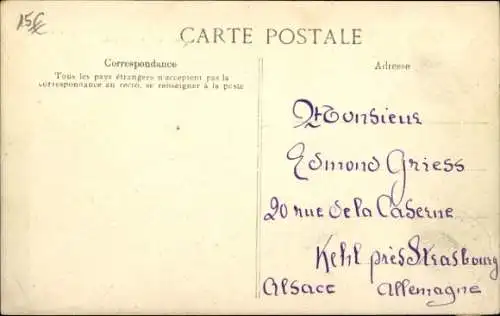 15€
CARTE POSTALE
Correspondance
Tous les pays étrangers n'acceptent pas la
correspondance au recto, se renseigner à la poste
Adresse
Monsieur
Edmond Griess
20 rue de la Caserne
Kehl près Strasbourg
Alsace Allemagne